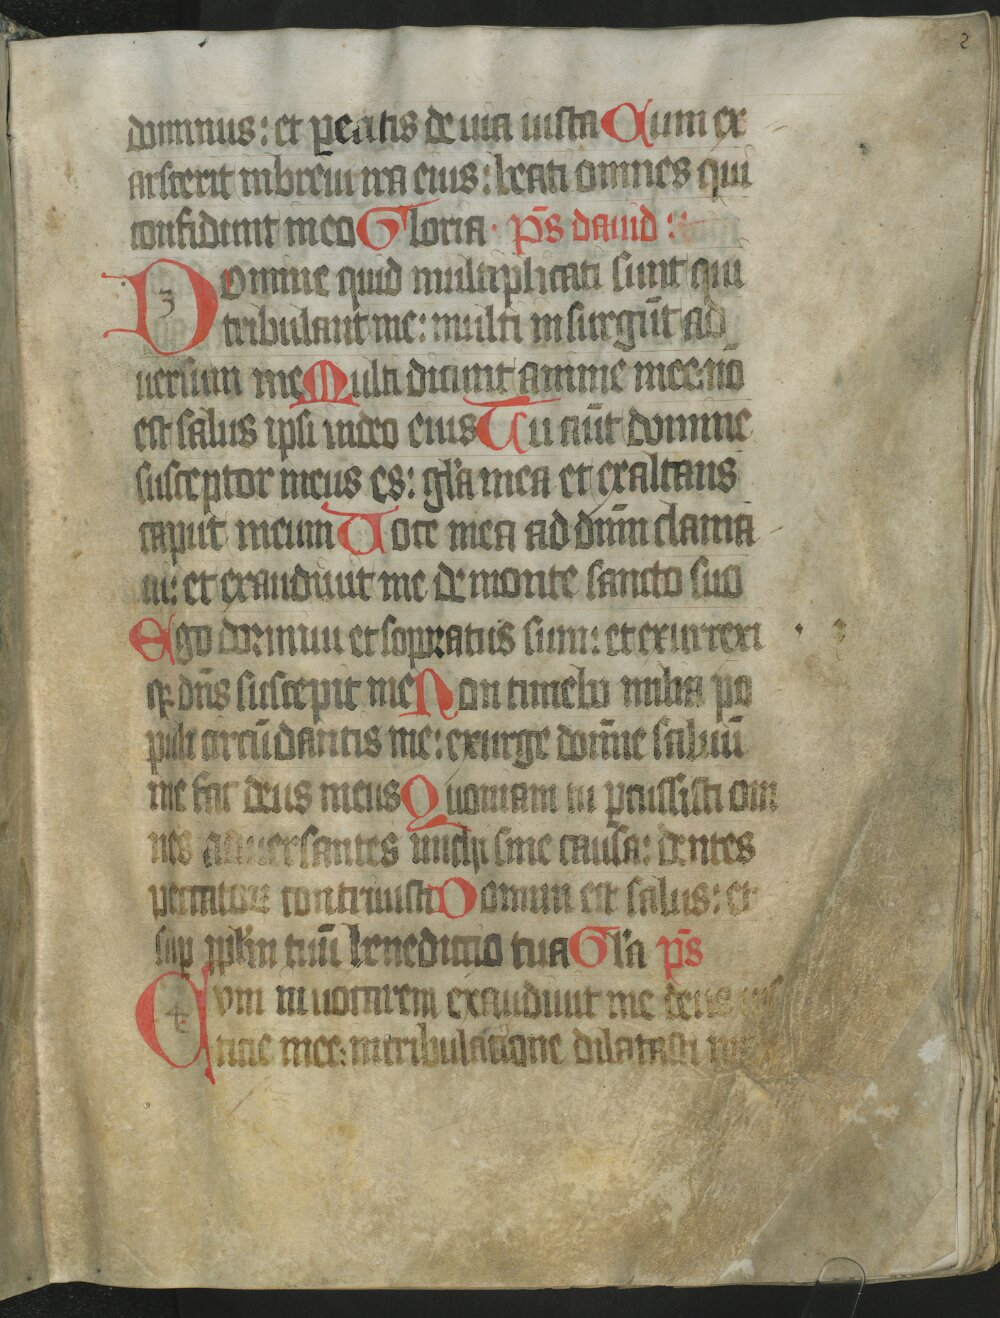 2
dominus: et peratis de uia iusta Cum ex
arserit in breui ira eius: beati omnes qui
confidunt in eo Gloria · p̄s dauid :
3 Domine quid multiplicati sunt qui
tribulant me: multi insurgūt ad
uersum me Multi dicunt anime mee: nō
est salus ipsi in deo eius Tu aūt domine
susceptor meus es: gl̄a mea et exaltans
caput meum Uoce mea ad dn̄m clama
ui: et exaudiuit me de monte sancto suo
Ego dormiui et sopratus sum: et exurrexi
qr dn̄s suscepit me Non timebo milia po
puli circūdantis me: exurge domīe saluū
me fac deus meus Quoniam tu pcussisti om
nes aduersantes michi sine causa: dentes
peccatorꝝ contriuisti Domini est salus: et
sup pplm̄ tuū benedictio tua Gl̄a p̄s
4 Cum inuocarem exaudiuit me deus ius
ticie mee: in tribulatione dilatasti